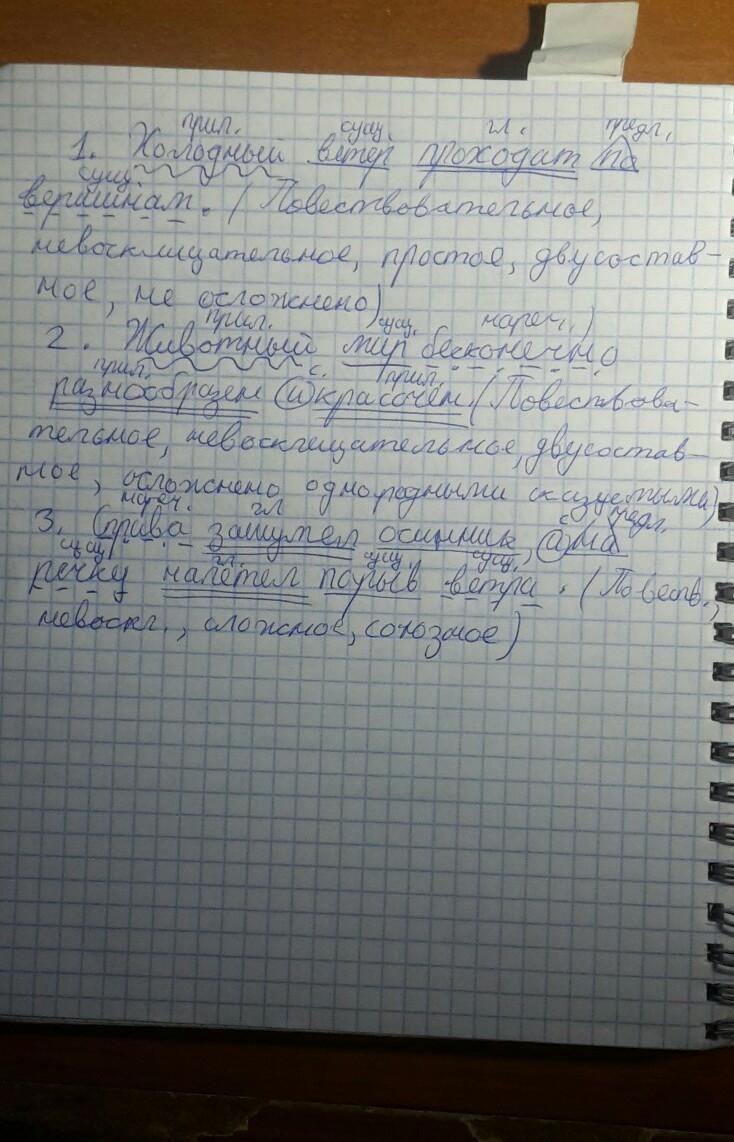 прил. сущ. гл. предл.
1. Холодный ветер проходат по
сущ.
вершинам. (Повествовательное,
невосклицательное, простое, двусостав-
ное, не осложнено)
прил. сущ. нареч.)
2. Животный мир бесконечно
прил. с. прил.
разнообразен и красочен. (Повествова-
тельное, невосклицательное, двусостав-
ное, осложнено однородными сказуемыми)
нареч. гл с предл.
3. Справа зашумел осинник, а на
сущ. гл. сущ. сущ.
речку налетел порыв ветра. (Повеств.,
невоскл., сложное, союзное)